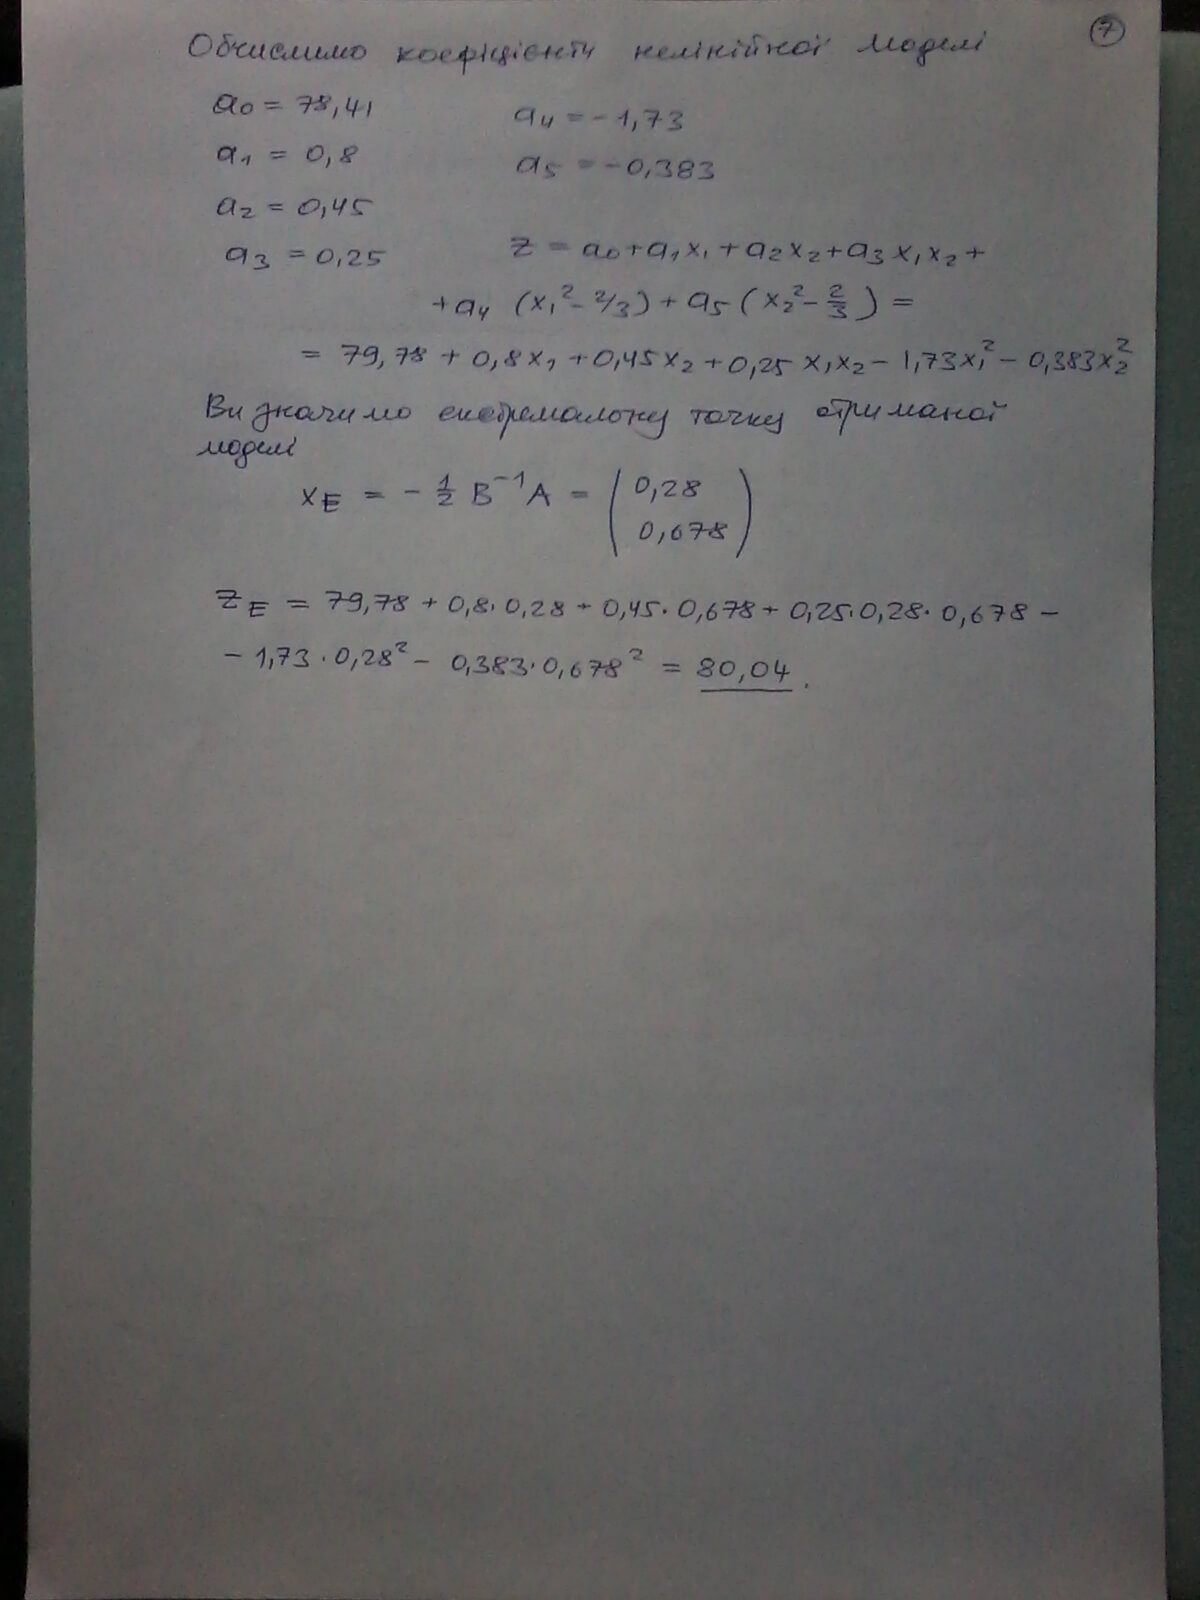 Обчислимо коефіцієнти нелінійної моделі ⑦
a₀ = 78,41 a₄ = -1,73
a₁ = 0,8 a₅ = -0,383
a₂ = 0,45
a₃ = 0,25 z = a₀ + a₁x₁ + a₂x₂ + a₃x₁x₂ +
+ a₄ (x₁² - 2/3) + a₅ (x₂² - 2/3) =
= 79,78 + 0,8x₁ + 0,45x₂ + 0,25 x₁x₂ - 1,73x₁² - 0,383x₂²
Визначимо екстремальну точку отриманої
моделі
x_E = - 1/2 B⁻¹A = (0,28
0,678)
z_E = 79,78 + 0,8·0,28 + 0,45·0,678 + 0,25·0,28·0,678 -
- 1,73·0,28² - 0,383·0,678² = 80,04.